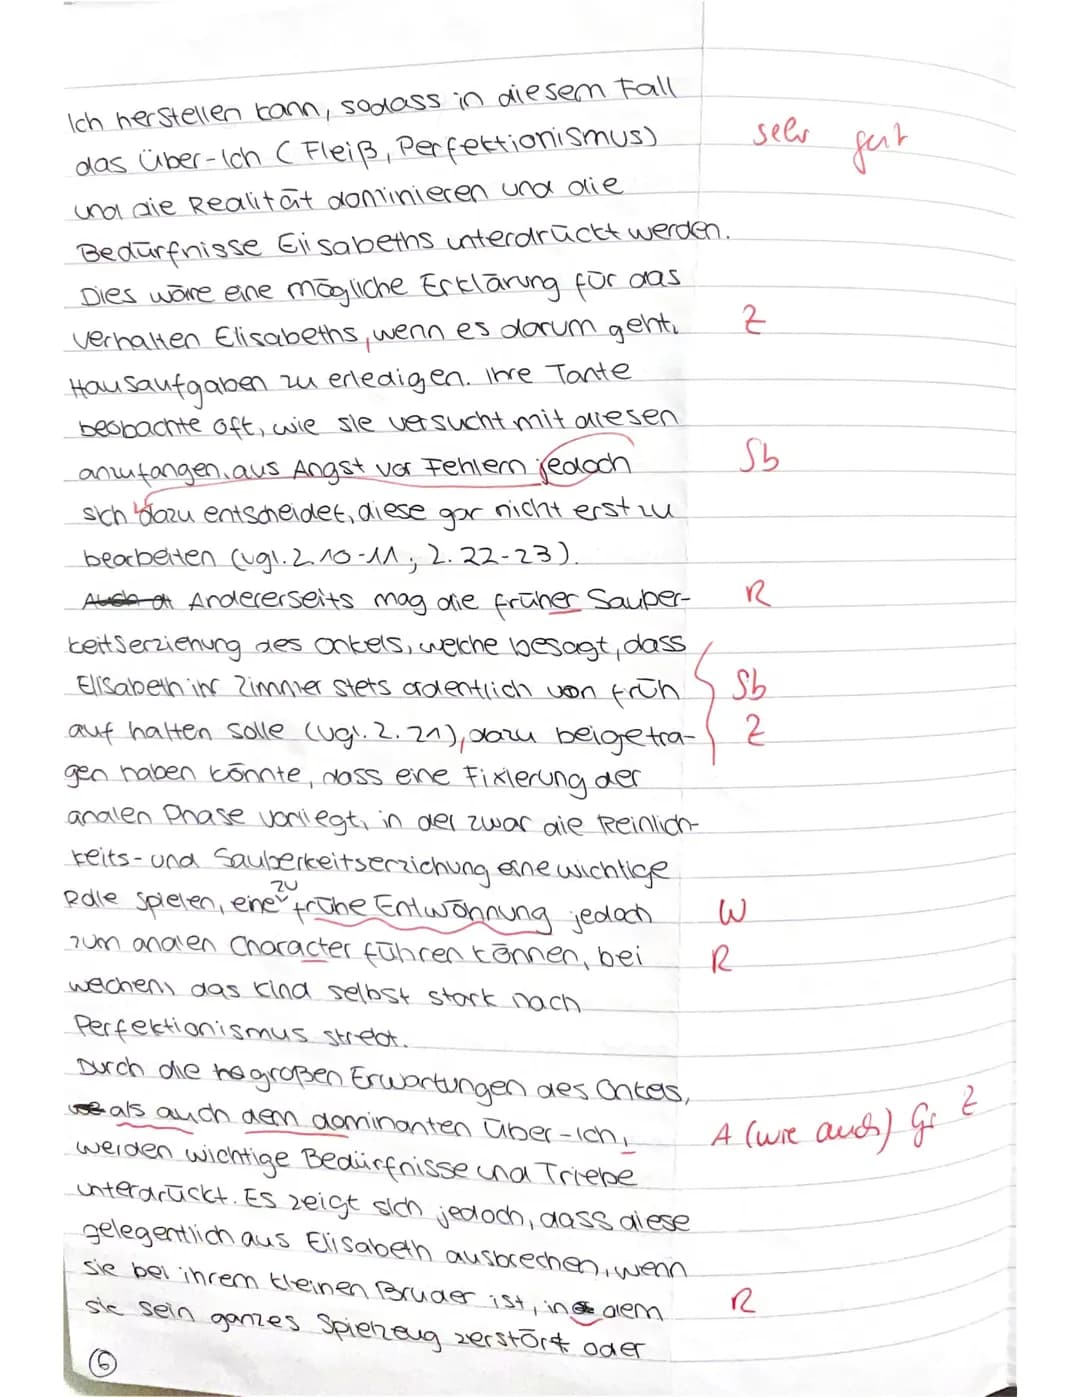 Ich herstellen kann, sodass in diesem Fall
das Über-Ich (Fleiß, Perfektionismus)
sehr gut
und die Realität dominieren und die
Bedürfnisse Elisabeths unterdrückt werden.
Dies wäre eine mögliche Erklärung für das
Verhalten Elisabeths, wenn es darum geht,
Z
Hausaufgaben zu erledigen. Ihre Tante
beobachte oft, wie sie versucht mit diesen
anzufangen, aus Angst vor Fehlern jedoch
Sb
sich dazu entscheidet, diese gar nicht erst zu
bearbeiten (vgl. Z. 10-11; Z. 22-23).
Andererseits mag die früher Sauber-
R
keitserziehung des Onkels, welche besagt, dass
Elisabeth ihr Zimmer stets ordentlich von früh
Sb
auf halten solle (vgl. Z. 21), dazu beigetra-
Z
gen haben könnte, dass eine Fixierung der
analen Phase vorliegt, in der zwar die Reinlich-
keits- und Sauberkeitserziehung eine wichtige
Rolle spielen, eine zu frühe Entwöhnung jedoch
W
zum analen Character führen können, bei
R
welchem das Kind selbst stark nach
Perfektionismus strebt.
Durch die großen Erwartungen des Onkels,
als auch dem dominanten Über-Ich,
A (wie auch) Gr Z
werden wichtige Bedürfnisse und Triebe
unterdrückt. Es zeigt sich jedoch, dass diese
gelegentlich aus Elisabeth ausbrechen, wenn
sie bei ihrem kleinen Bruder ist, in dem
R
sie sein ganzes Spielzeug zerstört oder
6